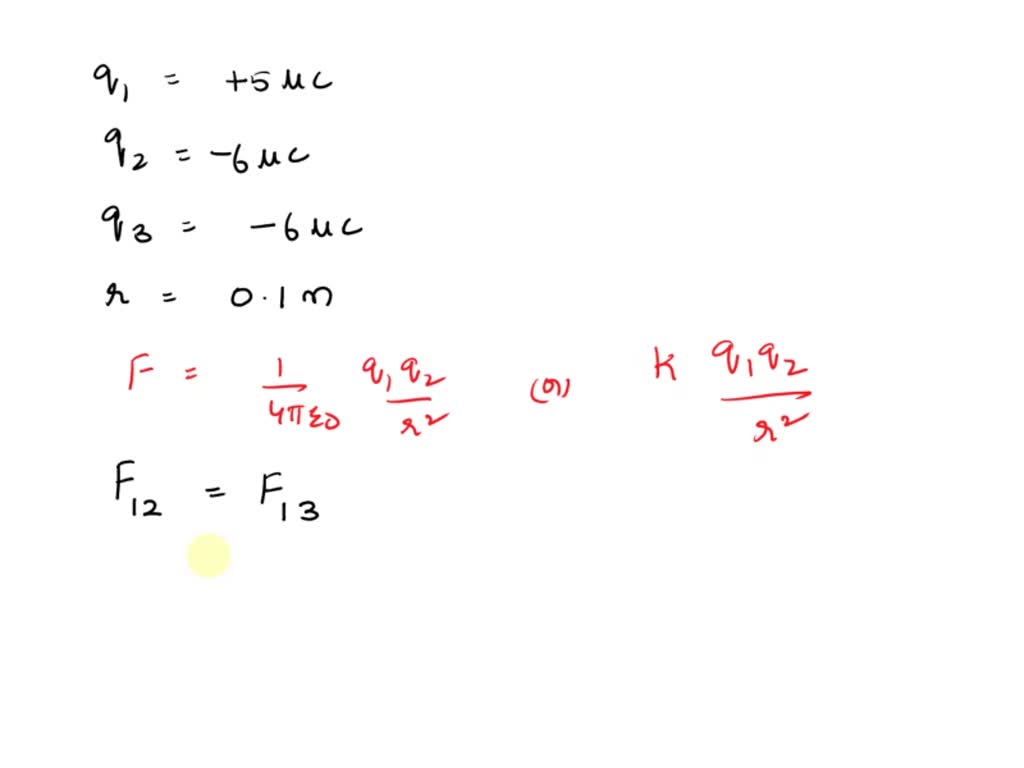 q₁ = +5 μC
q₂ = -6 μC
q₃ = -6 μC
r = 0.1 m
F = 1/4πε0 q₁q₂/r² (or) K q₁q₂/r²
F₁₂ = F₁₃